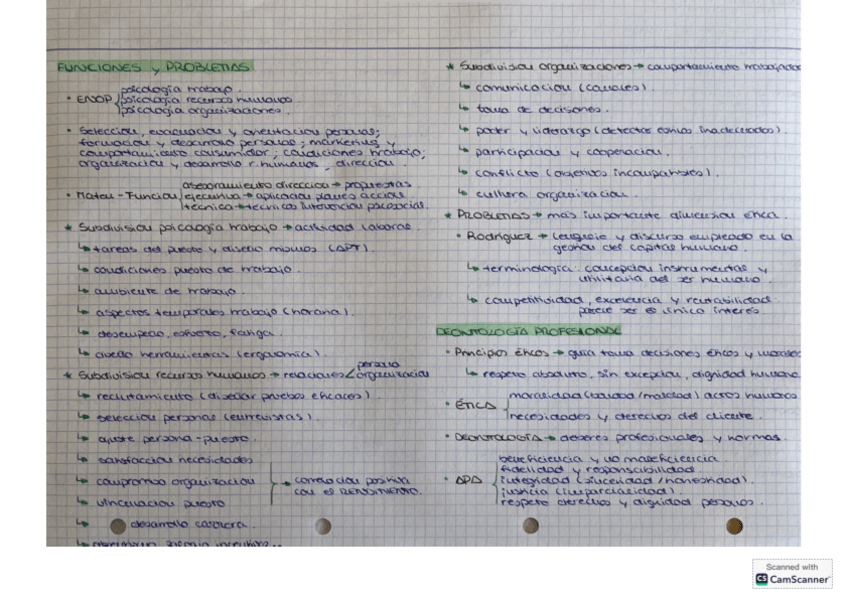 FUNCIONES y PROBLEMAS
psicología trabajo.
• ENOP psicología recursos humanos
psicología organizaciones.
• Selección, evaluación y orientación personal;
formación y desarrollo personal; marketing y
comportamiento consumidor; condiciones trabajo;
organización y desarrollo r. humanos, dirección.
asesoramiento dirección → propuestas
• Mateu - Función ejecutiva → aplicación planes acción
técnica → técnicas intervención psicosocial.
* Subdivisión psicología trabajo → actividad laboral.
↳ tareas del puesto y diseño mismos (APT).
↳ condiciones puesto de trabajo.
↳ ambiente de trabajo.
↳ aspectos temporales trabajo (horario).
↳ desempeño, esfuerzo, fatiga.
↳ diseño herramientas (ergonomía).
persona
* Subdivisión recursos humanos → relaciones < organización
↳ reclutamiento (diseñar pruebas eficaces).
↳ selección personal (entrevistas).
↳ ajuste persona-puesto.
↳ satisfacción necesidades
↳ compromiso organización → correlación positiva
con el RENDIMIENTO.
↳ vinculación puesto
↳ desarrollo carrera.
* Subdivisión organizaciones → comportamiento trabajador
↳ comunicación (canales).
↳ toma de decisiones.
↳ poder y liderazgo (detectar estilos inadecuados).
↳ participación y cooperación.
↳ conflicto (objetivos incompatibles).
↳ cultura organización.
* PROBLEMAS → más importante dimensión ética.
• Rodríguez → lenguaje y discurso empleado en la
gestión del capital humano.
↳ terminología: concepción instrumental y
utilitaria del ser humano.
↳ competitividad, excelencia y rentabilidad
parece ser el único interés
DEONTOLOGÍA PROFESIONAL
• Principios éticos → guía toma decisiones éticas y morales
↳ respeto absoluto, sin excepción, dignidad humana
• ÉTICA moralidad (bondad/maldad) actos humanos
necesidades y derechos del cliente.
• DEONTOLOGÍA → deberes profesionales y normas.
beneficiencia y no maleficiencia
fidelidad y responsabilidad.
• APA integridad (sinceridad/honestidad).
justicia (imparcialidad).
respeto derechos y dignidad personas.
Scanned with
CS CamScanner